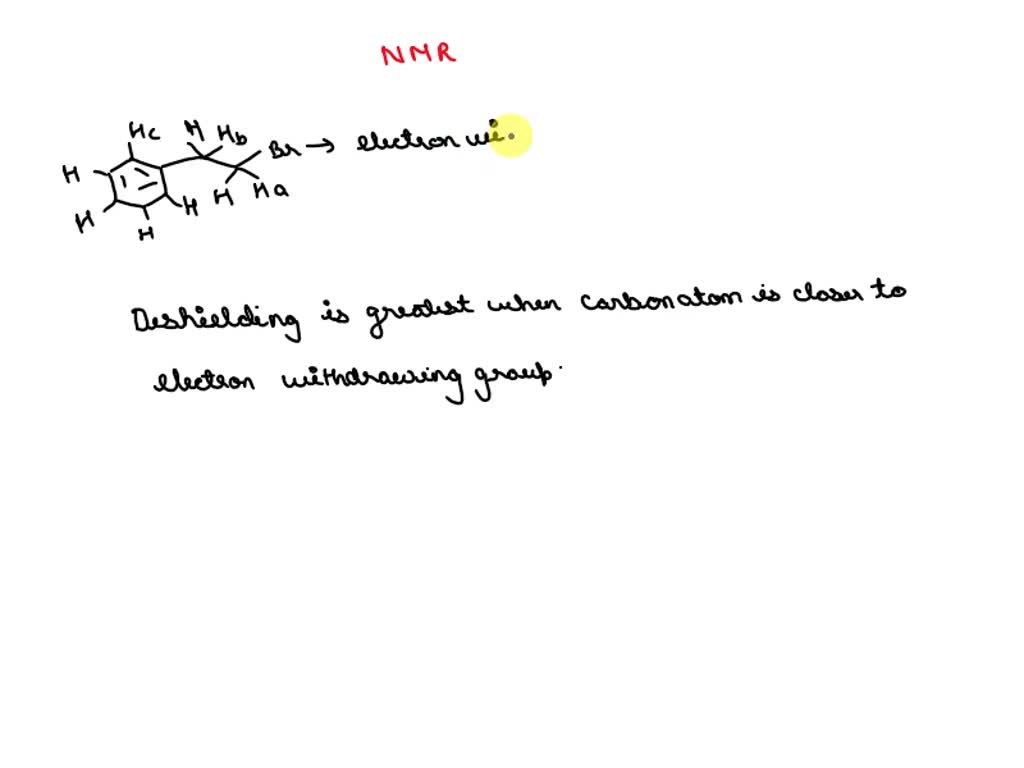 NMR
Hc H Hb
H Br → electron wi
H H Ha
H H
Deshielding is greatest when carbon atom is closer to
electron withdrawing group.